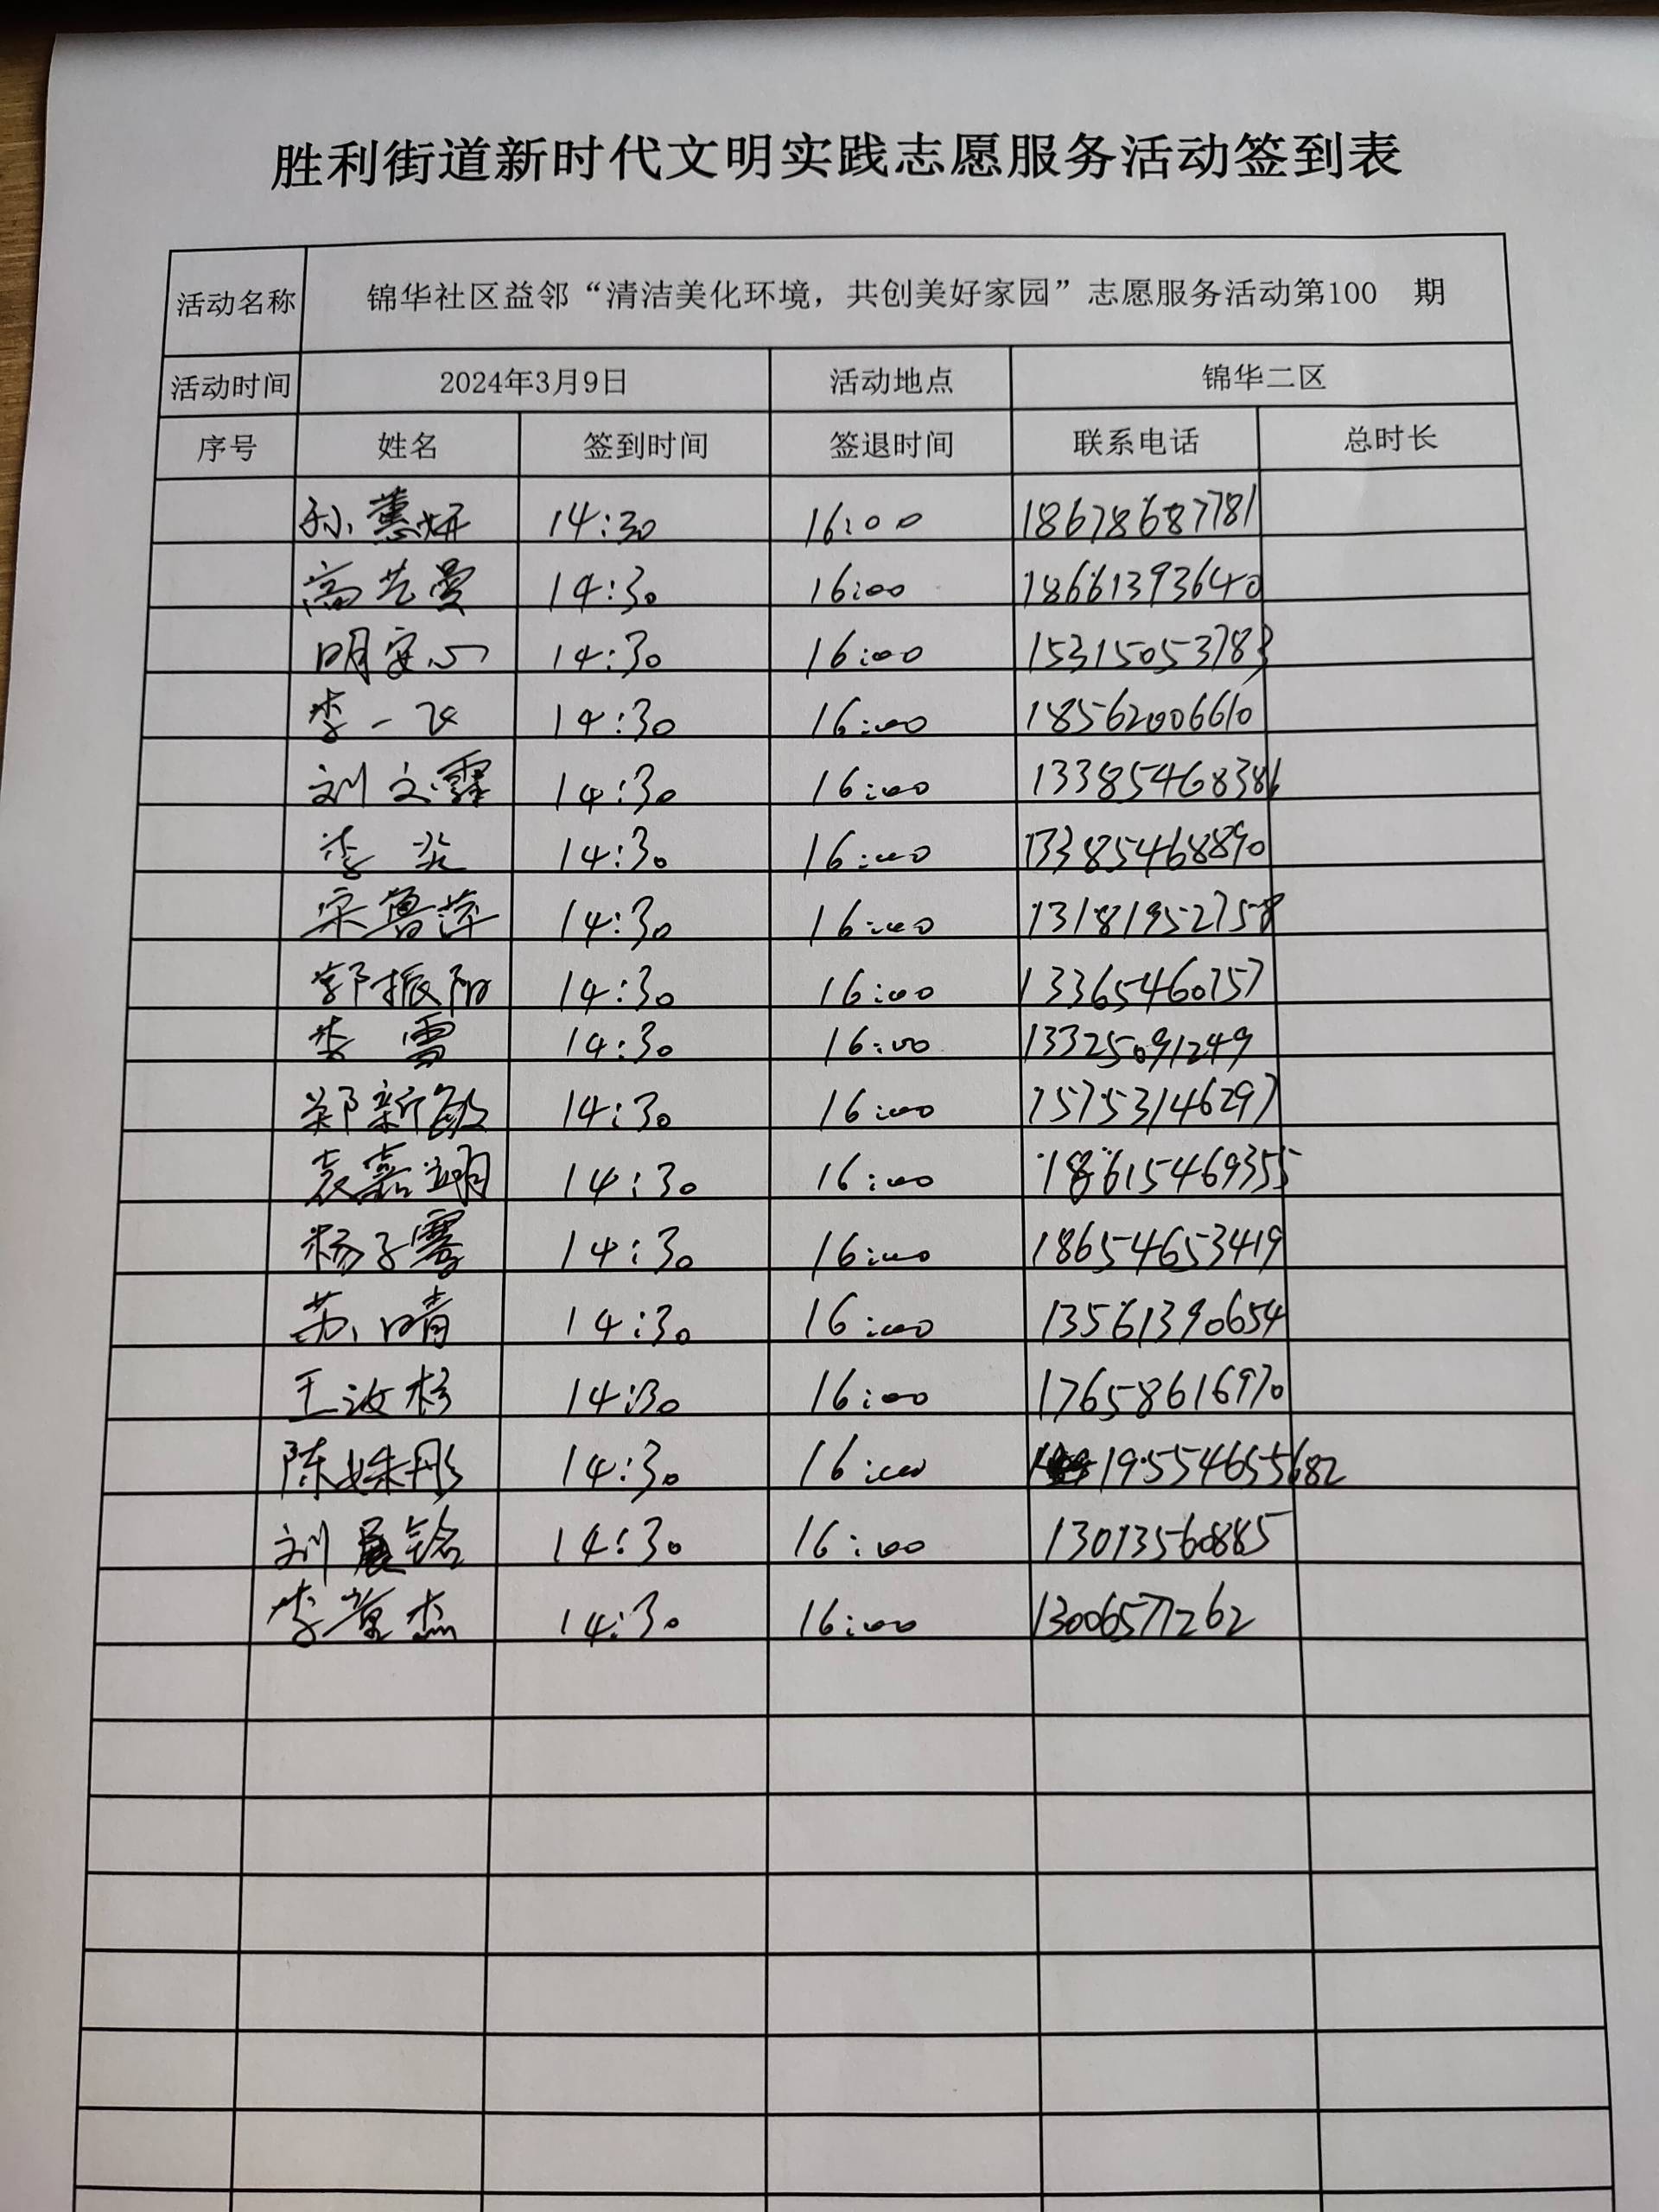 胜利街道新时代文明实践志愿服务活动签到表
活动名称 锦华社区益邻“清洁美化环境，共创美好家园”志愿服务活动第100 期
活动时间 2024年3月9日 活动地点 锦华二区
序号 姓名 签到时间 签退时间 联系电话 总时长
孙蕙妍 14:30 16:00 18678687781
高艺曼 14:30 16:00 18661393640
明安心 14:30 16:00 15315053783
李一飞 14:30 16:00 18562006610
刘文霏 14:30 16:00 13385468386
李 14:30 16:00 13385468890
宋鲁萍 14:30 16:00 13181952758
郭振阳 14:30 16:00 13365460757
李雪 14:30 16:00 13325091249
郑新敏 14:30 16:00 15753146297
袁嘉翊 14:30 16:00 18615469355
杨子骞 14:30 16:00 18654653419
苏晴 14:30 16:00 13561390654
王汝杨 14:30 16:00 17658616970
陈姝彤 14:30 16:00 195554655682
刘展铭 14:30 16:00 13013560885
李章杰 14:30 16:00 13006577262